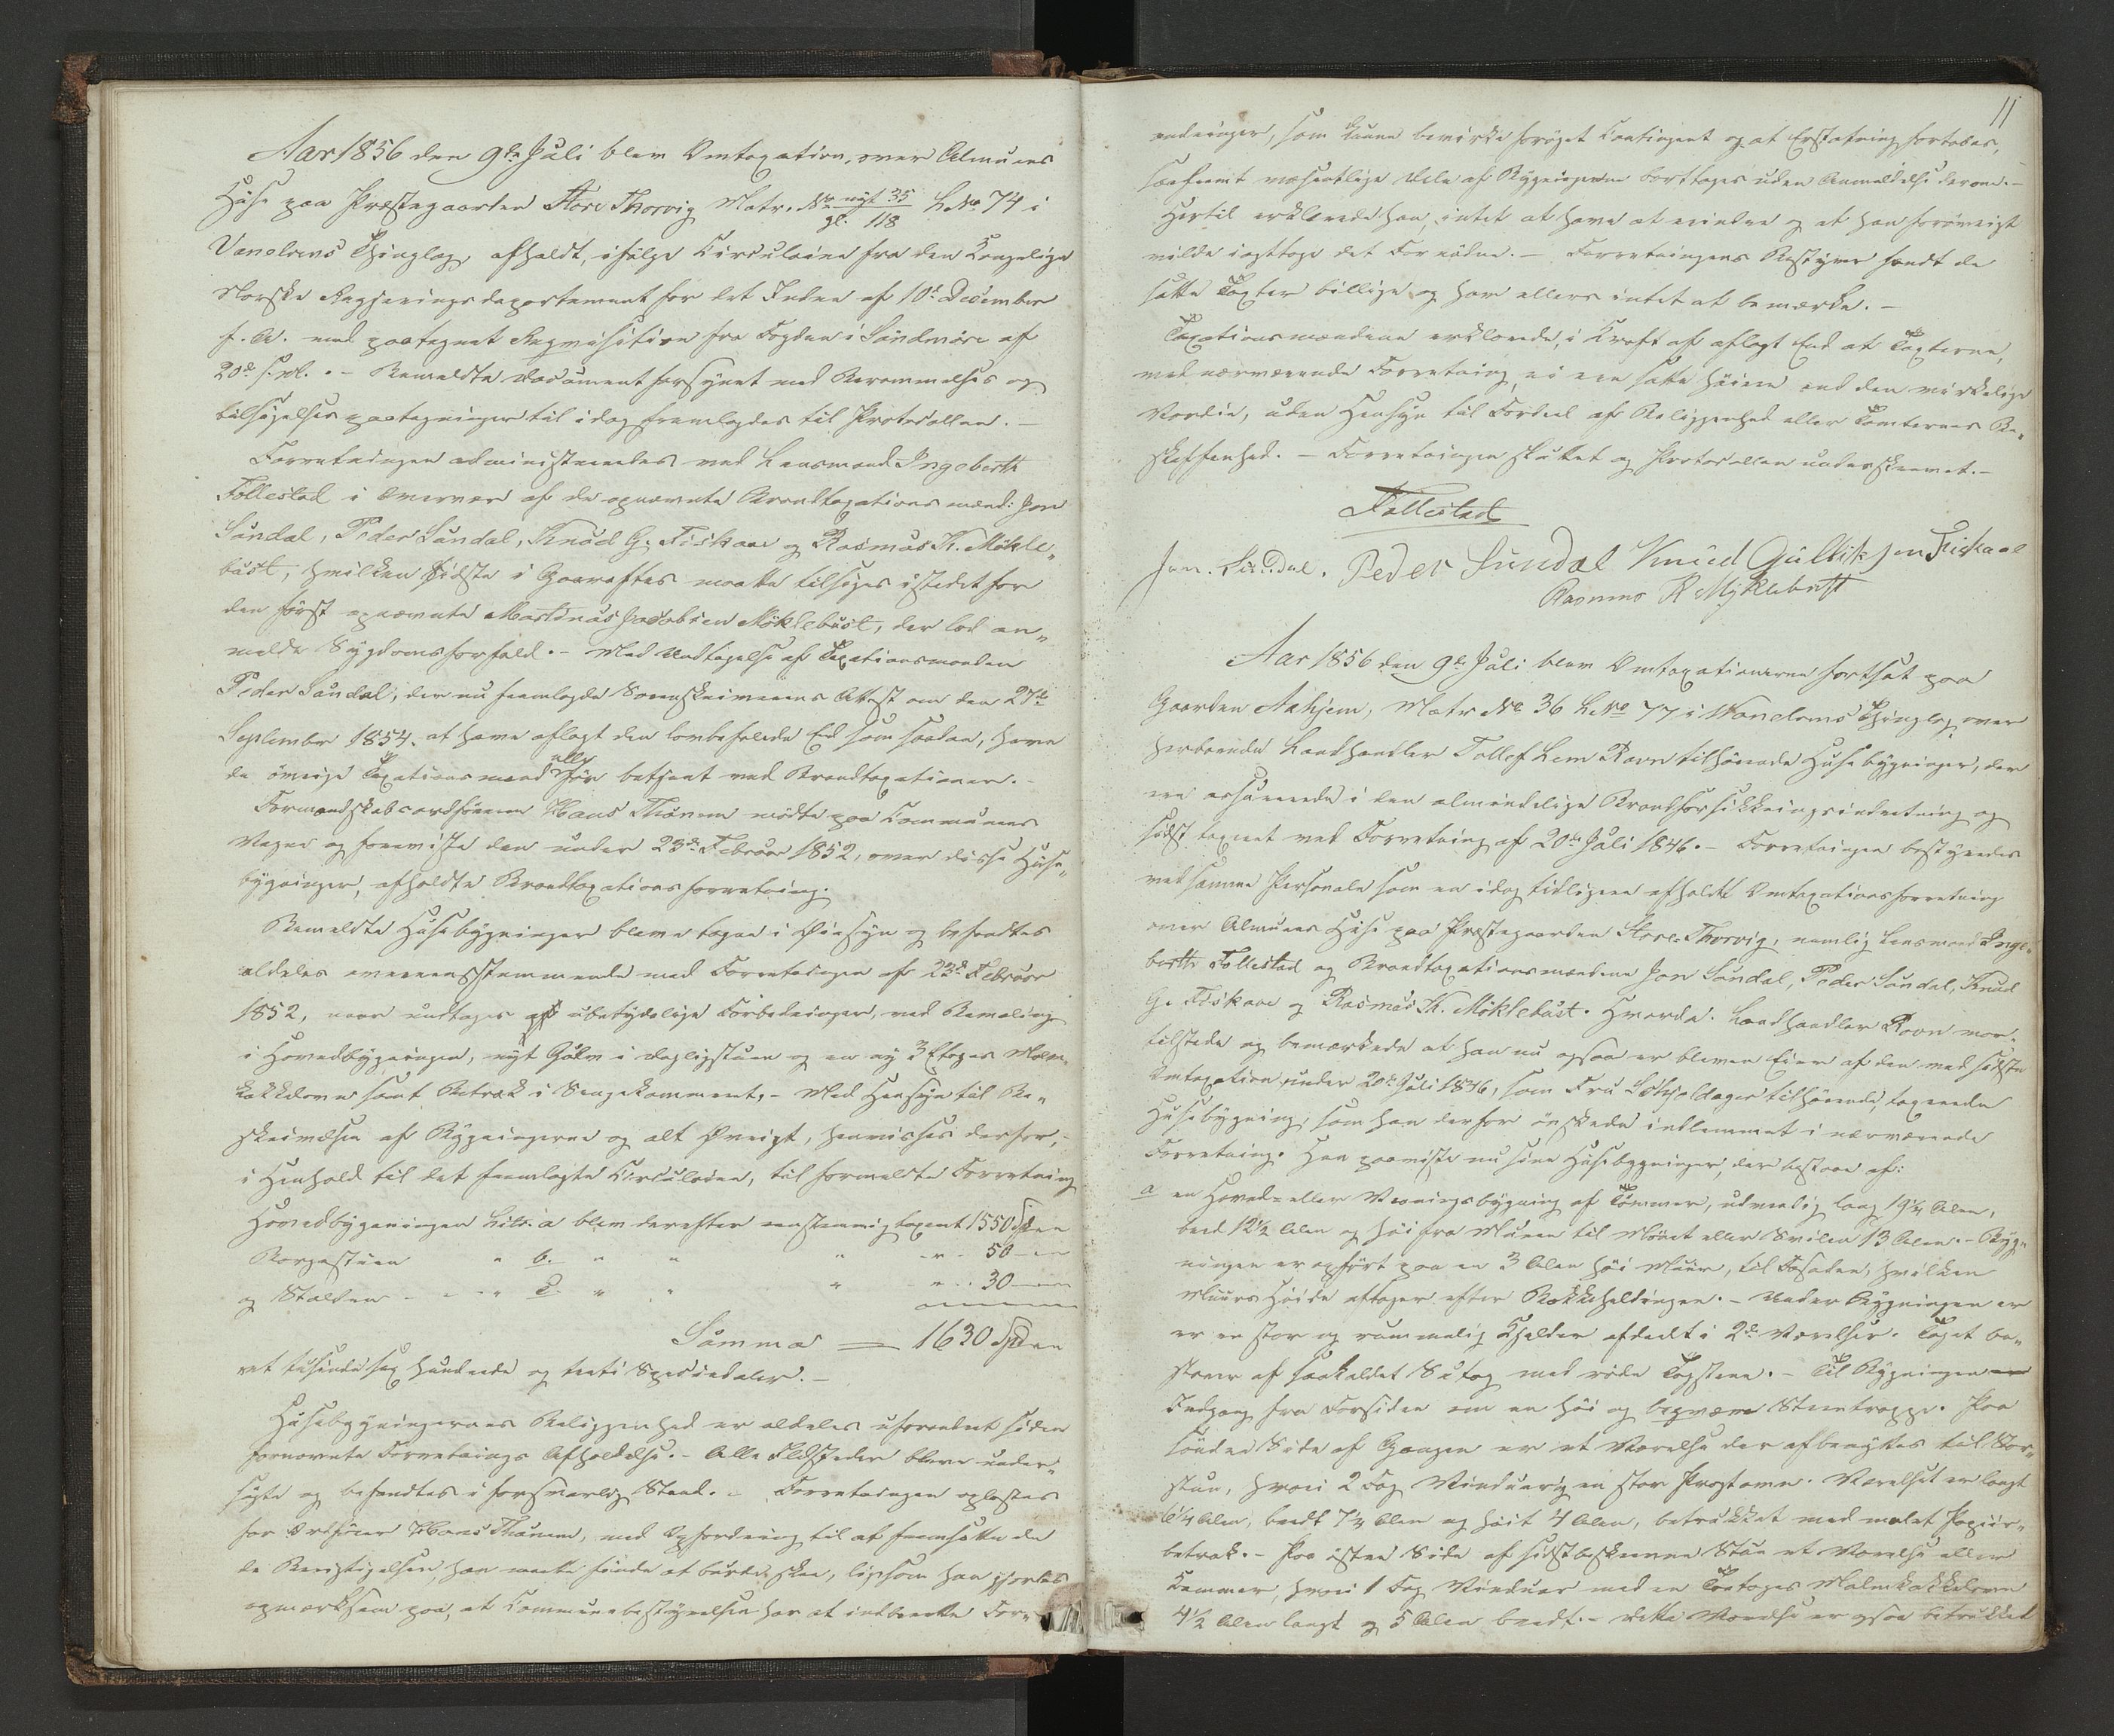 Aar 1856 den 9de Juli blev Omtaxation, over Almuens
Huse paa Præstegaarden Store Thorvig Matr. No nyt 35 gl. 118 L. No 74 i
Vanelvens Thinglag, afholdt, ifølge Circulaire fra den Kongelige
Norske Regjerings departement for det Indre af 10de December
f. A. med paategnet Reqvisition fra Fogden i Søndmøre af
20de s. M. - Bemeldte Document forsynet med Berammelses og
tilsigelses paategninger til idag fremlagdes til Protocollen. -
Forretningen administreredes ved Lensmand Ingebrth
Follestad i Overvær af de opnævnte Brandtaxationsmænd: Jon
Sundal, Peder Sundal, Knud G. Fiskaae og Rasmus K. Mykle„
bust, hvilken sidste i Gaaraftes maatte tilsiges istedet for
den først opnævnte Martinus Jacobsen Myklebust, der lod an„
melde Sygdomsforfald. - Med Undtagelse af Taxationsmanden
Peder Sundal, der nu fremlagde Sorenskriverens Attest om den 27de
September 1854. at have aflagt den lovbefalede Ed som saadan, have
de øvrige Taxationsmænd alle før betjent ved Brandtaxationer. -
Formandskabsordfører Hans Thunem mødte paa Communens
Vegne og foreviste den under 23de Februar 1852, over disse Huse„
bygninger, afholdte Brandtaxationsforretning.
Bemeldte Husebygninger bleve tagne i Øiesyn og befandtes
aldeles overeensstemmende med Forretningen af 23de Februar
1852, naar undtages ubetydelige Forbedringer, ved Bemaling
i Hovedbygningen, nyt Gulv i Dagligstuen og en ny 3 Etages Malm„
kakkelovn samt Betræk i Sengekammeret. - Med Hensyn til Be„
skrivelsen af Bygningerne og alt Øvrigt, henvises derfor,
i Henhold til det fremlagte Circulaire, til formeldte Forretning
Hovedbygningen Litr. a blev derefter eenstemmig taxeret 1550 Spd
Borgestuen " b. " " " " 50 -
og Stalden - - " c. " " " " 30 -
Summa = 1630 Spd
et tusinde sex hundrede og treti Speciedaler. -
Husebygningernes Beliggenhed er aldeles uforandret siden
fornævnte Forretnings Afholdelse. - Alle Ildsteder bleve under„
søgte og befandtes i forsvarlig Stand. - Forretningen oplæstes
for Ordfører Hans Thunem, med Opfordring til at fremsætte de
de Berigtigelser, han maatte finde at burde skee, ligesom han gjordes
opmærksom paa, at Communebestyrelsen har at indberette For„
11
andringer, som kunne bevirke forøget Contingent og at Erstatning fortabes,
saafremt væsentlige Dele af Bygningerne borttages uden Anmeldelse derom. -
Hertil erklærede han, intet at have at erindre og at han forøvrigt
vilde iagttage det Fornødne. - Forretningens Bestyrer fandt de
satte Taxter billige og har ellers intet at bemærke. -
Taxationsmændene erklærede, i Kraft af aflagt Eed at Taxterne,
ved nærværende Forretning, ei ere satte høiere end den virkelige
Værdie, uden Hensyn til Fordeel af Beliggenhed eller Tomternes Be„
skaffenhed. - Forretningen sluttet og Protocollen underskrevet. -
Follestad
Jon. Sundal. Peder Sundal Knud Gulliksen Fiskaae
Rasmus K Myklebust
Aar 1856 den 9de Juli blev Omtaxationerne fortsat paa
Gaarden Aahjem, Matr No 36 L No 77 i Vanelvens Thinglag, over
herboende Landhandler Tollef Lem Ravn tilhørende Husebygninger, der
ere assurerede i den almindelige Brandforsikkringsindretning og
sidst taxeret ved Forretning af 20de Juli 1846. - Forretningen bestyredes
ved samme Personale som en idag tidligere afholdt Omtaxationsforretning
over Almuens Huse paa Præstegaarden Store Thorvig, nemlig Lensmand Inge„
brth Follestad og Brandtaxationsmændene Jon Sundal, Peder Sundal, Knud
G. Fiskaae og Rasmus K. Myklebust. Hvorda. Landhandler Ravn var
tilstede og bemærkede at han nu ogsaa er bleven Eier af den ved sidste
Omtaxation under 20de Juli 1846, som Fru tilhørende, taxerede
Husebygning, som han derfor ønskede indlemmet i nærværende
Forretning. Han paaviste nu sine Husebygninger, der bestaar af:
a en Hoved- eller Vaaningsbygning af Tømmer, udvendig lang 19¼ Alen,
bred 12½ Alen og høi fra Muren til Mønet eller Svilen 13 Alen. - Byg„
ningen er opført paa en 3 Alen høi Muur, til Facaden, hvilken
Muurs Høide aftager efter Bakkehældingen. - Under Bygningen er
er en stor og rummelig Kjelder afdeelt i 2de Værelser. Taget be„
staaer af saakaldet Sutag med røde Tagstene. - Til Bygningen er
Indgang fra Forsiden om en høi og beqvæm Steentrappe. Paa
søndre Side af Gangen er et Værelse der afbenyttes til Stor„
stue, hvori 2 Fag Vinduer og en stor Pragtovn. Værelset er langt
6¼ Alen, bredt 7¼ Alen og høit 4 Alen, betrukket med malet Papiir„
betræk. - Paa østre Side af sidstbeskrevne Stue et Værelse eller
Kammer, hvori 1 Fag Vinduer med en Toetages Malmkakkelovn
4½ Alen langt og 5 Alen bredt. - dette Værelse er ogsaa betrukket